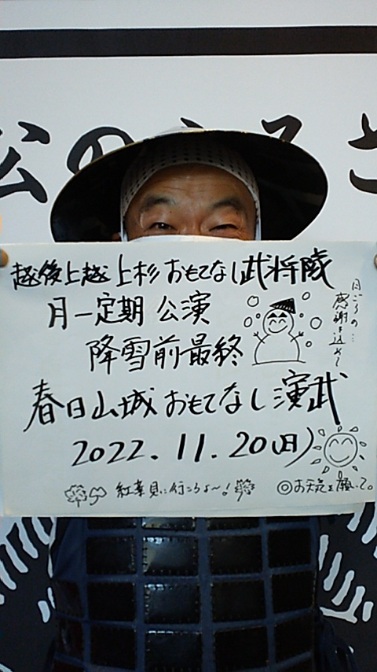 公のふるさ
越後上越 上杉おもてなし武将隊
月一定期 公演
日ごろの…
感謝を込めて
降雪前最終
春日山城 おもてなし演武
2022.11.20(日)
紅葉見に行こうよ〜!
◎お天気を願いて。